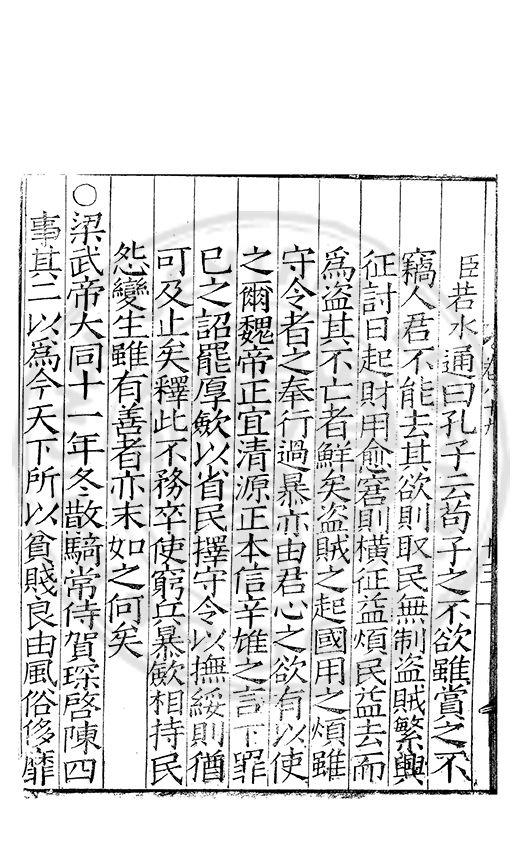 臣若水通曰孔子云苟子之不欲雖賞之不
竊人君不能去其欲則取民無制盗賊繁興
征討日起財用愈窘則橫征益煩民益去而
爲盗其不亡者鮮矣盗賊之起國用之煩雖
守令者之奉行過暴亦由君心之欲有以使
之爾魏帝正宜清源正本信辛雄之言下罪
巳之詔罷厚斂以省民擇守令以撫綏則猶
可及止矣釋此不務卒使窮兵暴斂相持民
怨變生雖有善者亦末如之何矣
○梁武帝大同十一年冬散騎常侍賀琛啓陳四
事其二以爲今天下所以貧賤良由風俗侈靡